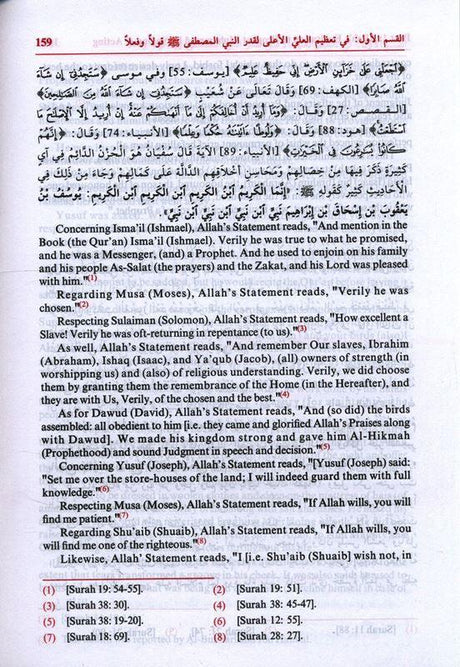 159 القسم الأول: في تعظيم العليِّ الأعلى لقدر النبي المصطفى ﷺ قولاً وفعلاً
﴿اجْعَلْنِي عَلَى خَزَائِنِ الْأَرْضِ إِنِّي حَفِيظٌ عَلِيمٌ﴾ [يوسف: 55] وفي موسى ﴿سَتَجِدُنِي إِن شَاءَ
اللَّهُ صَابِرًا﴾ [الكهف: 69] وَقَالَ تَعَالَى عَنْ شُعَيْبٍ ﴿سَتَجِدُنِي إِن شَاءَ اللَّهُ مِنَ الصَّالِحِينَ﴾
[القصص: 27] وَقَالَ: ﴿وَمَا أُرِيدُ أَنْ أُخَالِفَكُمْ إِلَى مَا أَنْهَاكُمْ عَنْهُ إِنْ أُرِيدُ إِلَّا الْإِصْلَاحَ مَا
اسْتَطَعْتُ﴾ [هود: 88] وَقَالَ: ﴿وَلُوطًا آتَيْنَاهُ حُكْمًا وَعِلْمًا﴾ [الأنبياء: 74] وَقَالَ: ﴿إِنَّهُمْ
كَانُوا يُسَارِعُونَ فِي الْخَيْرَاتِ﴾ [الأنبياء: 89] الآيَةَ قَالَ سُفْيَانُ هُوَ الْحُزْنُ الدَّائِمُ فِي آيٍ
كَثِيرَةٍ ذَكَرَ فِيهَا مِنْ خِصَالِهِمْ وَمَحَاسِنِ أَخْلَاقِهِمُ الدَّالَّةِ عَلَى كَمَالِهِمْ وَجَاءَ مِنْ ذَلِكَ فِي
الْأَحَادِيثِ كَثِيرٌ كَقَوْلِهِ ﷺ: «إِنَّمَا الْكَرِيمُ ابْنُ الْكَرِيمِ ابْنِ الْكَرِيمِ ابْنِ الْكَرِيمِ: يُوسُفُ بْنُ
يَعْقُوبَ بْنِ إِسْحَاقَ بْنِ إِبْرَاهِيمَ نَبِيٌّ ابْنُ نَبِيٍّ ابْنِ نَبِيٍّ ابْنِ نَبِيٍّ»
Concerning Isma'il (Ishmael), Allah's Statement reads, "And mention in the
Book (the Qur'an) Isma'il (Ishmael). Verily he was true to what he promised,
and he was a Messenger, (and) a Prophet. And he used to enjoin on his family
and his people As-Salat (the prayers) and the Zakat, and his Lord was pleased
with him."(1)
Regarding Musa (Moses), Allah's Statement reads, "Verily he was
chosen."(2)
Respecting Sulaiman (Solomon), Allah's Statement reads, "How excellent a
Slave! Verily he was oft-returning in repentance (to us)."(3)
As well, Allah's Statement reads, "And remember Our slaves, Ibrahim
(Abraham), Ishaq (Isaac), and Ya'qub (Jacob), (all) owners of strength (in
worshipping us) and (also) of religious understanding. Verily, we did choose
them by granting them the remembrance of the Home (in the Hereafter), and
they are with Us, Verily, of the chosen and the best."(4)
As for Dawud (David), Allah's Statement reads, "And (so did) the birds
assembled: all obedient to him [i.e. they came and glorified Allah's Praises along
with Dawud]. We made his kingdom strong and gave him Al-Hikmah
(Prophethood) and sound Judgment in speech and decision."(5)
Concerning Yusuf (Joseph), Allah's Statement reads, "[Yusuf (Joseph) said:
"Set me over the store-houses of the land; I will indeed guard them with full
knowledge."(6)
Respecting Musa (Moses), Allah's Statement reads, "If Allah wills, you will
find me patient."(7)
Regarding Shu'aib (Shuaib), Allah's Statement reads, "If Allah wills, you
will find me one of the righteous."(8)
Likewise, Allah' Statement reads, "I [i.e. Shu'aib (Shuaib] wish not, in
(1) [Surah 19: 54-55]. (2) [Surah 19: 51].
(3) [Surah 38: 30]. (4) [Surah 38: 45-47].
(5) [Surah 38: 19-20]. (6) [Surah 12: 55].
(7) [Surah 18: 69]. (8) [Surah 28: 27].